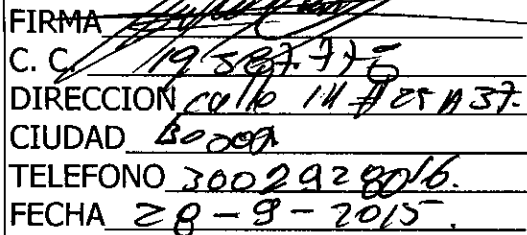 FIRMA
C. C. 19 587.775
DIRECCION calle 1H # 25 A 37.
CIUDAD Bogota
TELEFONO 3002928016.
FECHA 28 - 9 - 2015.